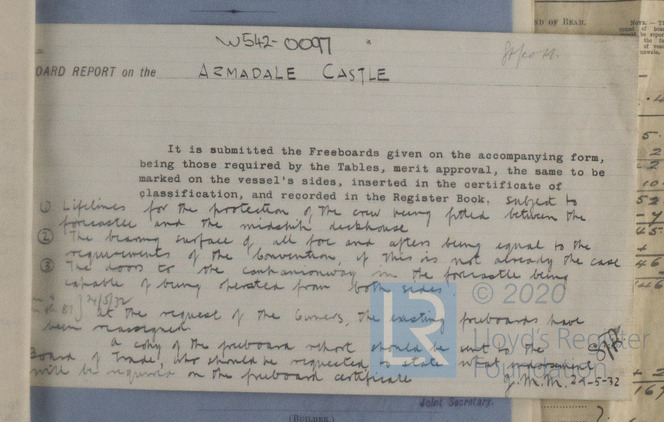 W542-0097
OARD REPORT on the ARMADALE CASTLE
It is submitted the Freeboards given on the accompanying form,
being those required by the Tables, merit approval, the same to be
marked on the vessel's sides, inserted in the certificate of
classification, and recorded in the Register Book. subject to
① Lifelines for the protection of the crew being fitted between the
forecastle and the midship deckhouse
② The bearing surface of all fore and afters being equal to the
requirements of the Convention, if this is not already the case
③ The doors to the companionway in the forecastle being
capable of being operated from both sides
24/5/32
at the request of the Owners, the existing freeboards have
been reassigned.
A copy of the freeboard report should be sent to the
Board of Trade, who should be requested to state what endorsement
will be required on the freeboard certificate
J.M.M. 24-5-32
Joint Secretary.
(BUILDER.)
ND OF BEAD.
LR
© 2020
Lloyd's Register
Foundation